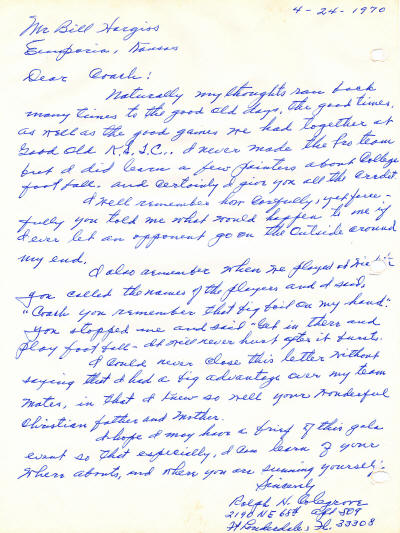 4-24-1970
Mr Bill Hargiss
Emporia, Kansas
Dear Coach:
Naturally my thoughts ran back
many times to the good old days, the good times,
as well as the good games we had together at
Good Old K.S.T.C.. I never made the Pro team
but I did learn a few pointers about College
foot ball. and certainly I give you all the credit
I well remember how carefully, yet force-
fully you told me what would happen to me if
I ever let an opponent go on the outside around
my end.
I also remember when we played at
you called the names of the players and I said,
"Coach you remember that big boil on my hand"
you stopped me and said "Get in there and
play foot ball - It will never hurt after it bursts.
I could never close this letter without
saying that I had a big advantage over my team
mates, in that I knew so well your wonderful
Christian father and mother.
I hope I may have a brief of this gala
event so that especially, I can learn of your
where abouts, and when you are sunning yourself.
Sincerely
Ralph H. Colegrove
2190 NE 68th Apt 509
Ft Lauderdale, Fl. 33308